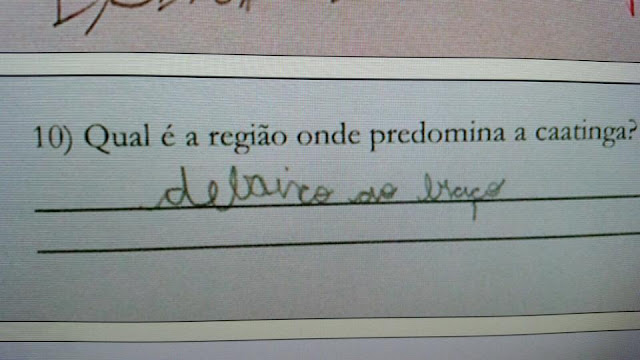 10) Qual é a região onde predomina a caatinga?
debaixo do braço